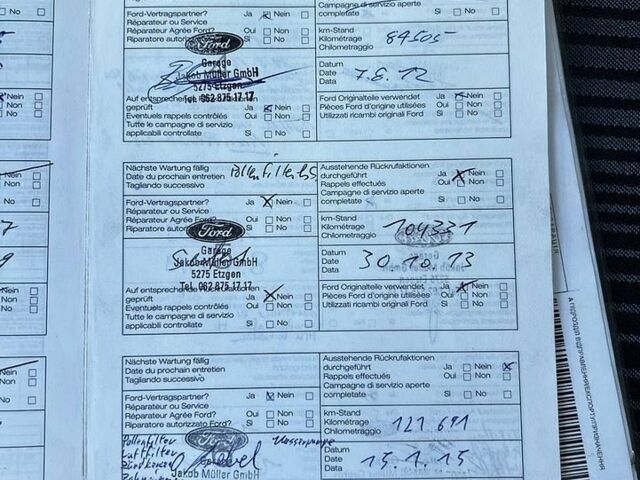 Ford-Vertragspartner? Ja Nein
Réparateur ou Service
Réparateur Agrée Ford? Oui Non
Riparatore autorizzato Si No
Ford
Garage
Jakob Müller GmbH
5275 Etzgen
Tel. 062 875 17 17
geprüft Ja Nein
Eventuels rappels contrôlés Oui Non
Tutte le campagne di servizio
applicabili controllate Si No
Campagne di servizio aperte
completate Si No
km-Stand
Kilométrage
Chilometraggio
84505
Datum
Date
Data
7.8.12
Ford Originalteile verwendet Ja Nein
Pièces Ford d'origine utilisées Oui Non
Utilizzati ricambi originali Ford Si No
Nächste Wartung fällig
Date du prochain entretien
Tagliando successivo
Ford-Vertragspartner? Ja Nein
Réparateur ou Service
Réparateur Agrée Ford? Oui Non
Riparatore Si No
Ford
Garage
Jakob Müller GmbH
5275 Etzgen
Tel. 062 875 17 17
geprüft Ja Nein
Eventuels rappels contrôlés Oui Non
Tutte le campagne di servizio
applicabili controllate Si No
Ausstehende Rückrufaktionen
durchgeführt Ja Nein
Rappels effectués Oui Non
Campagne di servizio aperte
completate Si No
km-Stand
Kilométrage
Chilometraggio
104331
Datum
Date
Data
30.10.13
Ford Originalteile verwendet Ja Nein
Pièces Ford d'origine utilisées Oui Non
Utilizzati ricambi originali Ford Si No
Nächste Wartung fällig
Date du prochain entretien
Tagliando successivo
Ford-Vertragspartner? Ja Nein
Réparateur ou Service
Réparateur Agrée Ford? Oui Non
Riparatore autorizzato Ford? Si No
Pollenfilter
Luftfilter
Ford
Jakob Müller GmbH
Ausstehende Rückrufaktionen
durchgeführt Ja Nein
Rappels effectués Oui Non
Campagne di servizio aperte
completate Si No
km-Stand
Kilométrage
Chilometraggio
121691
Datum
Date
Data
15.1.15